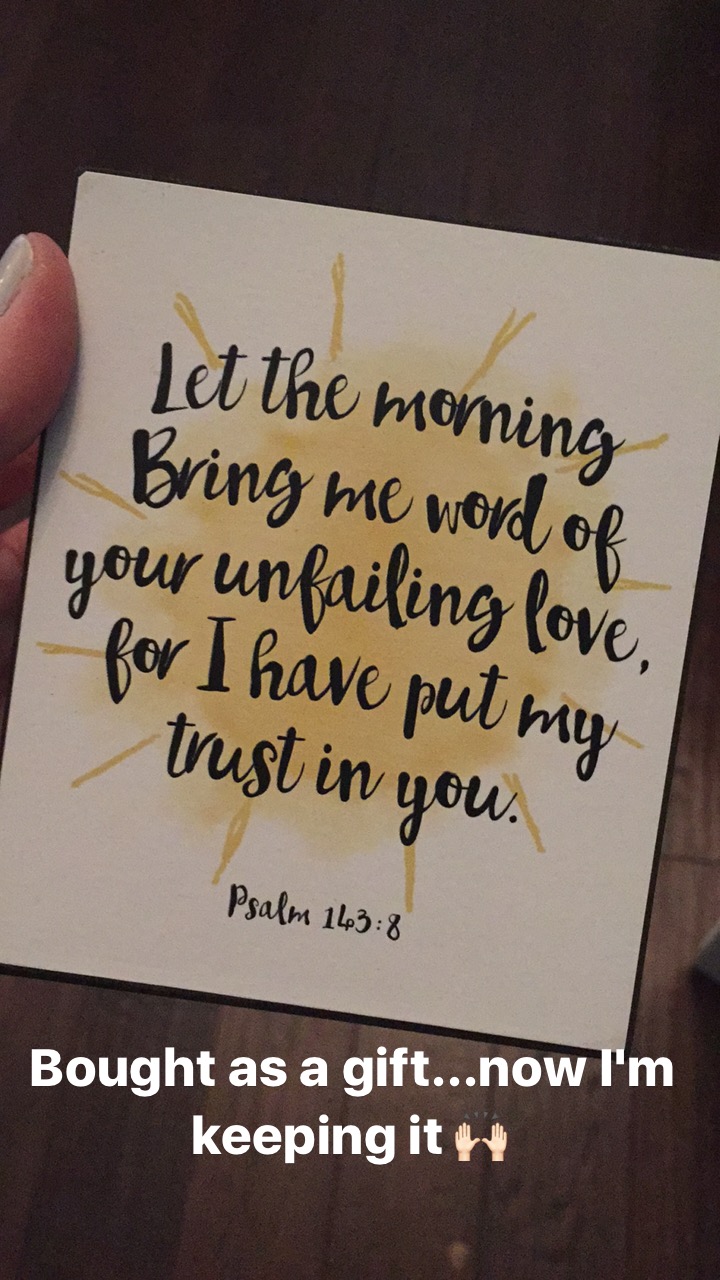 Let the morning
Bring me word of
your unfailing love,
for I have put my
trust in you.
Psalm 143:8
Bought as a gift...now I'm
keeping it 🙌🏻